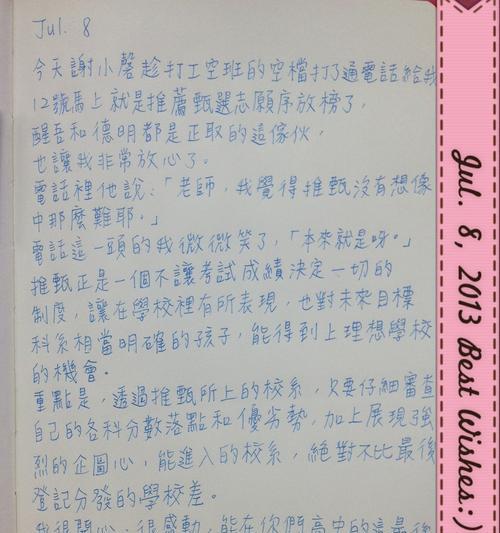 Jul. 8
今天謝小馨趁打工空班的空檔打了通電話給我
12號馬上就是推薦甄選志願序放榜了，
醒吾和德明都是正取的這傢伙，
也讓我非常放心了。
電話裡他說：「老師，我覺得推甄沒有想像
中那麼難耶。」
電話這一頭的我微微笑了，「本來就是呀。」
推甄正是一個不讓考試成績決定一切的
制度，讓在學校裡有所表現，也對未來目標
科系相當明確的孩子，能得到上理想學校
的機會。
重點是，透過推甄所上的校系，只要仔細審查
自己的各科分數落點和優劣勢，加上展現強
烈的企圖心，能進入的校系，絕對不比最後
登記分發的學校差。
我很開心，很感動，能在你們高中的這最後
Jul. 8, 2013 Best Wishes:)